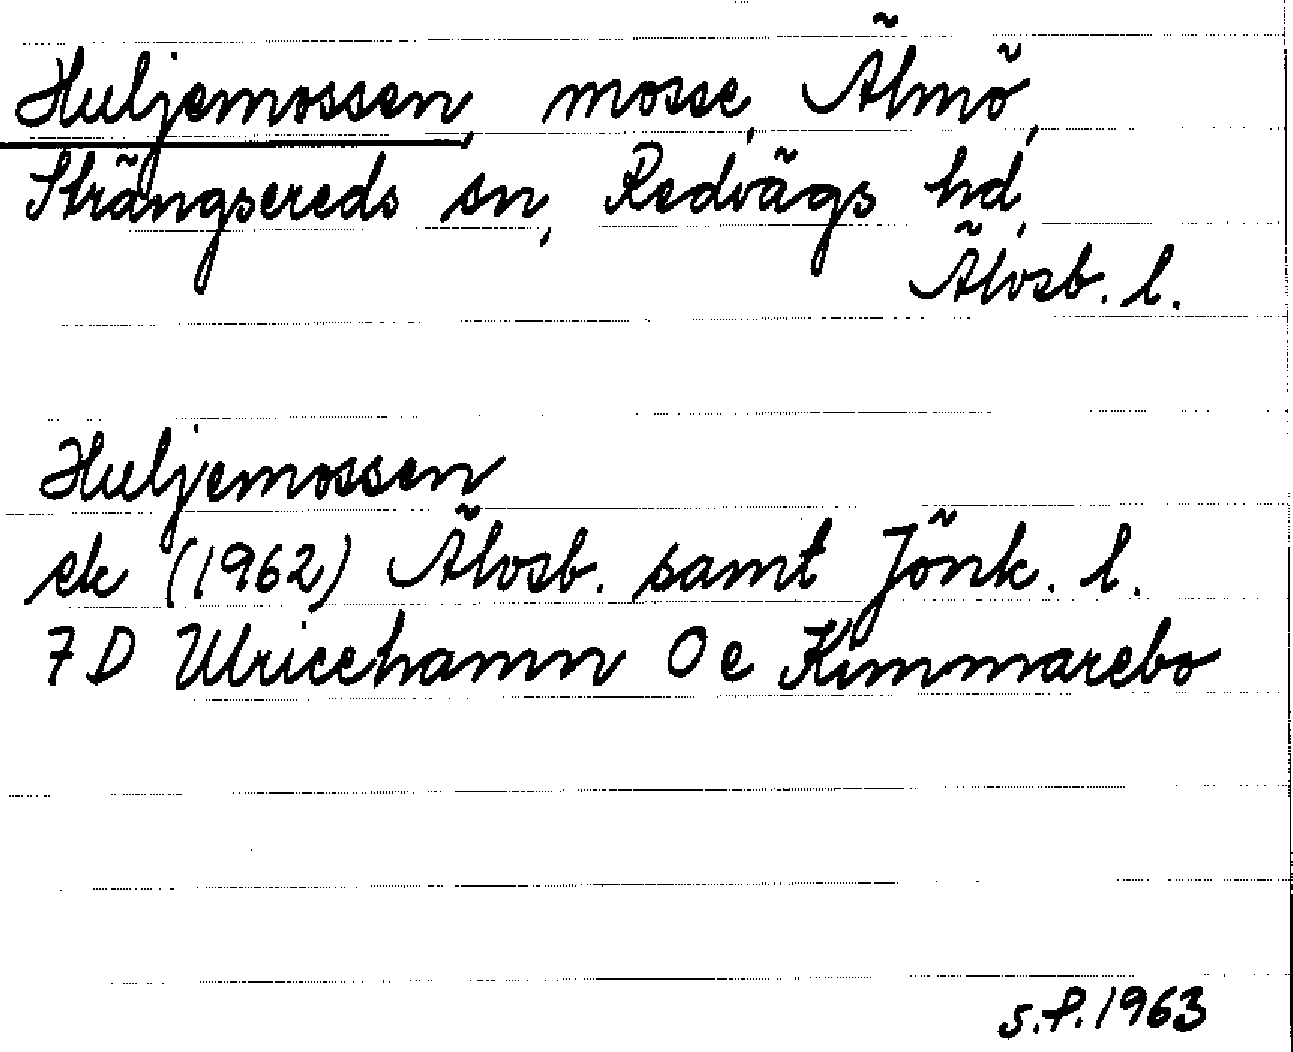 Huljemossen, mosse, Älmö,
Strängsereds sn, Redvägs hd,
Älvsb. l.
Huljemossen
ek (1962) Älvsb. samt Jönk. l.
7 D Ulricehamn 0 e Kummarebo
S.F. 1963